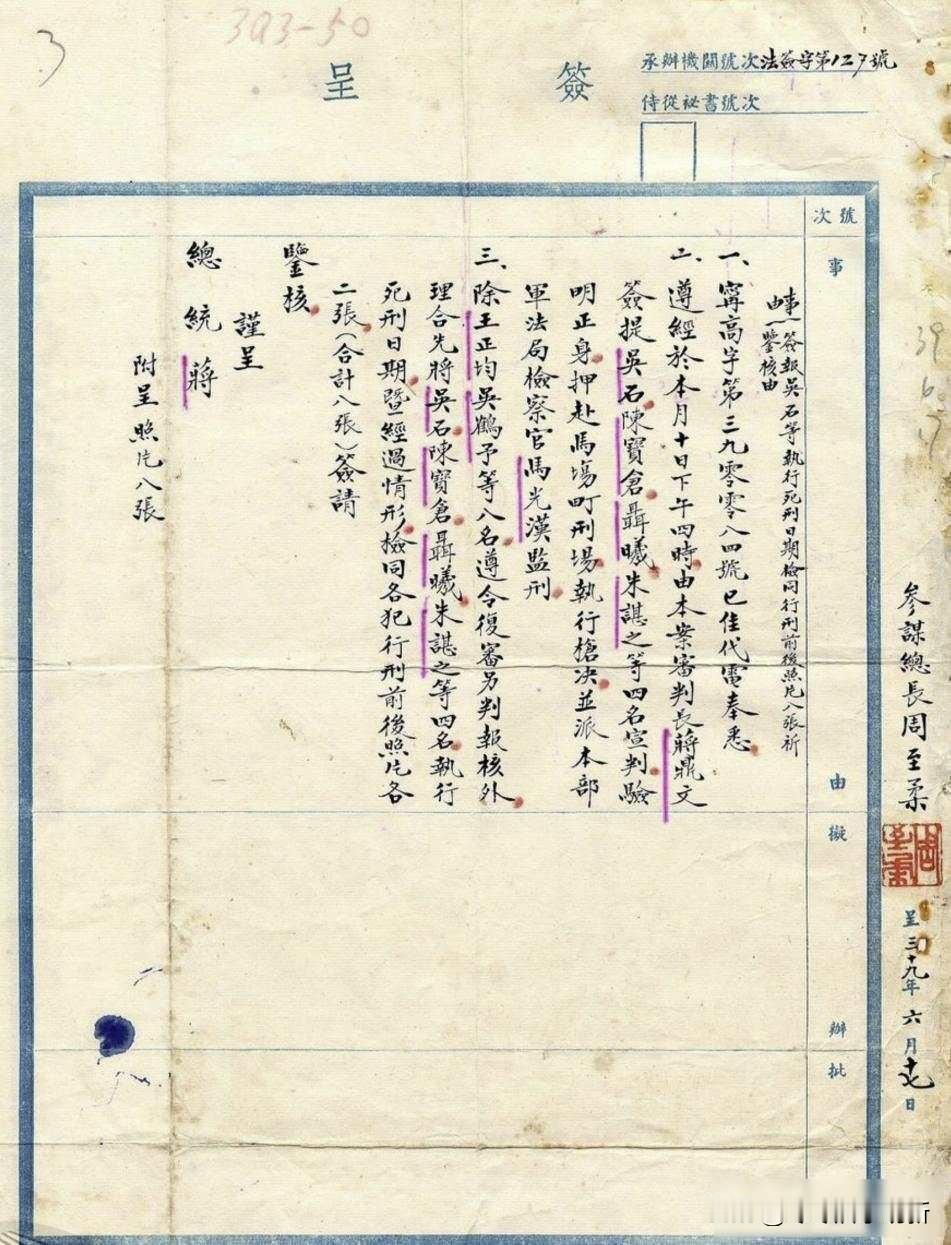 3
393-50
簽呈
承辦機關號次法簽字第127號
侍從祕書號次
號次
事由
擬辦
批
參謀總長周至柔
呈三十九年六月十七日
事由一簽報吳石等執行死刑日期檢同行刑前後照片八張祈
鑒核由
一、寗高字第三九零零八四號巳佳代電奉悉
二、遵經於本月十日下午四時由本案審判長蔣鼎文
簽提吳石陳寶倉聶曦朱諶之等四名宣判驗
明正身押赴馬塲町刑場執行槍决並派本部
軍法局檢察官馬光漢監刑
三、除王正均吳鶴予等八名遵令復審另判報核外
理合先將吳石陳寶倉聶曦朱諶之等四名執行
死刑日期暨經過情形檢同各犯行刑前後照片各
二張(合計八張)簽請
鑒核
謹呈
總統蔣
附呈照片八張